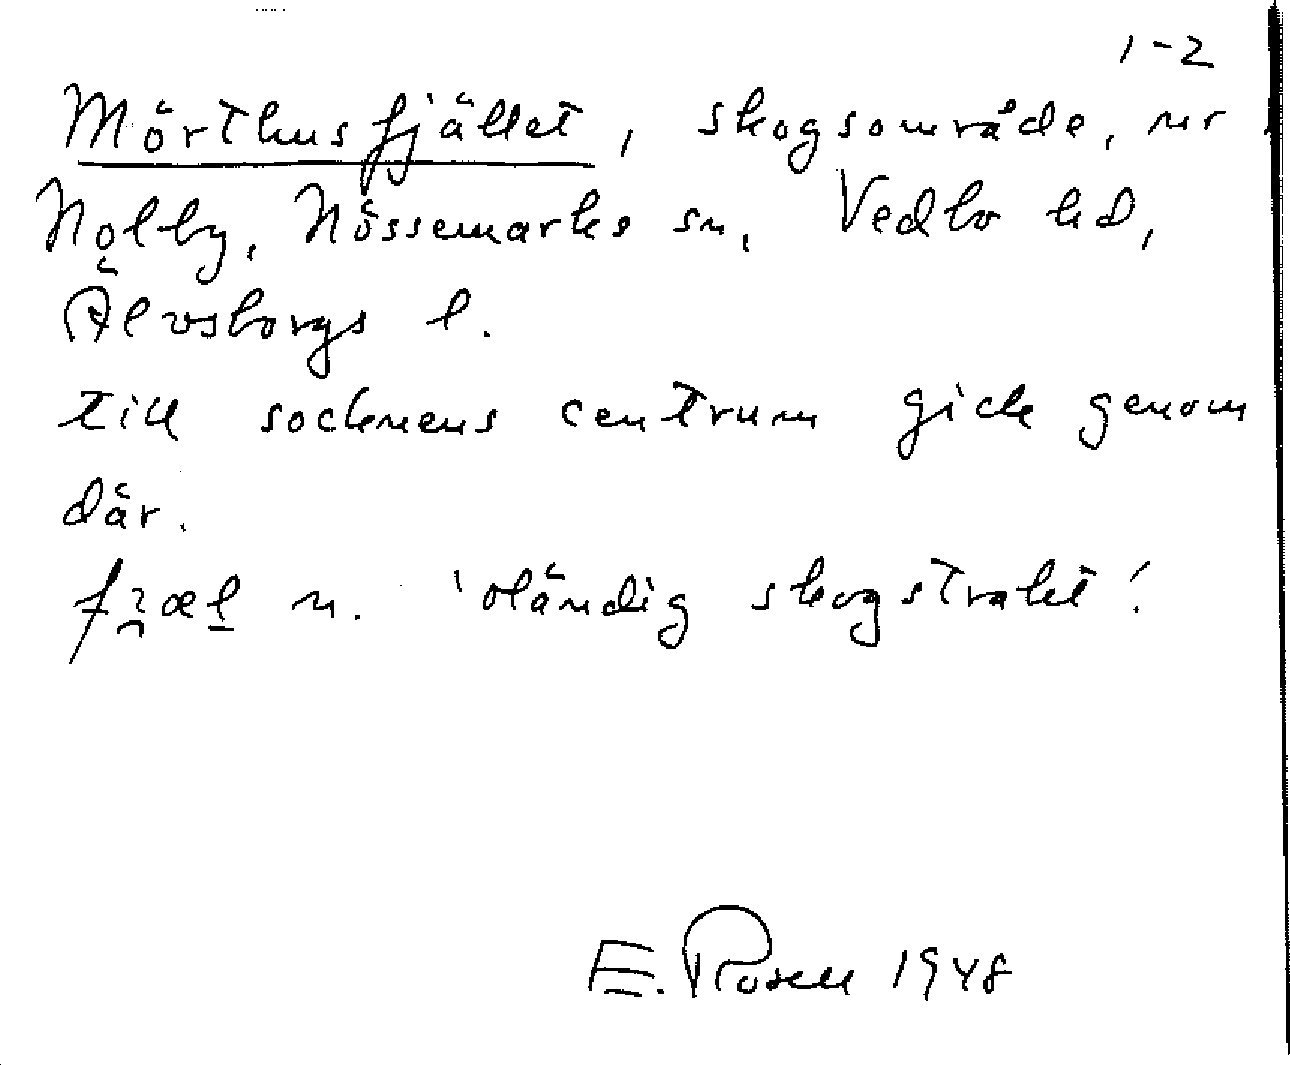 1-2
Mörthusfjället, skogsområde, nr
Nolby, Nössemarks sn, Vedbo hd,
Älvsborgs l.
till socknens centrum gick genom
där.
n. 'oländig skogstrakt'.
E. Rosell 1948